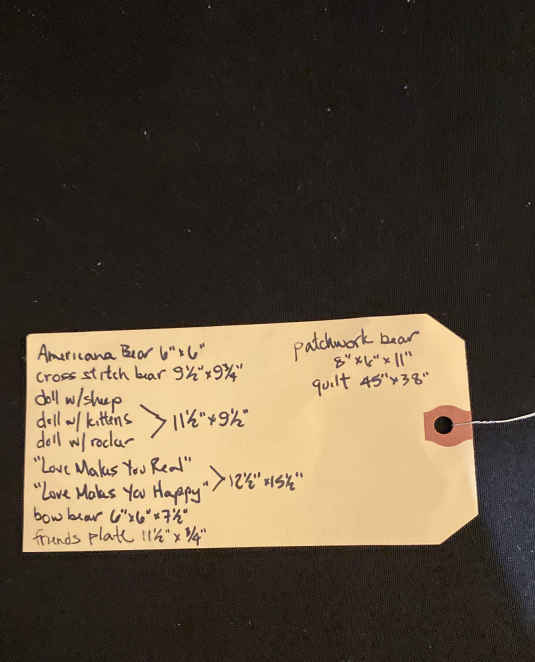 Americana Bear 6"x6"
cross stitch bear 9½"x9¾"
doll w/sheep
doll w/ kittens
doll w/ rocker
11½"x9½"
"Love Makes You Real"
"Love Makes You Happy"
12½"x15½"
bow bear 6"x6"x7½"
friends plate 11½"x¾"
patchwork bear
8"x6"x11"
quilt 45"x38"